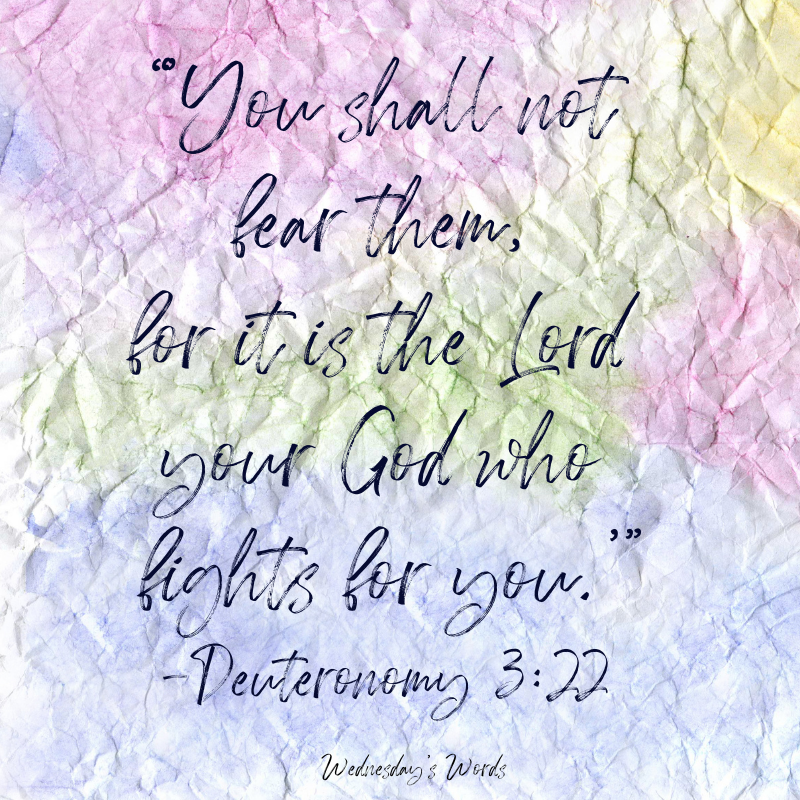 “‘You shall not
fear them,
for it is the Lord
your God who
fights for you.’”
-Deuteronomy 3:22
Wednesday's Words